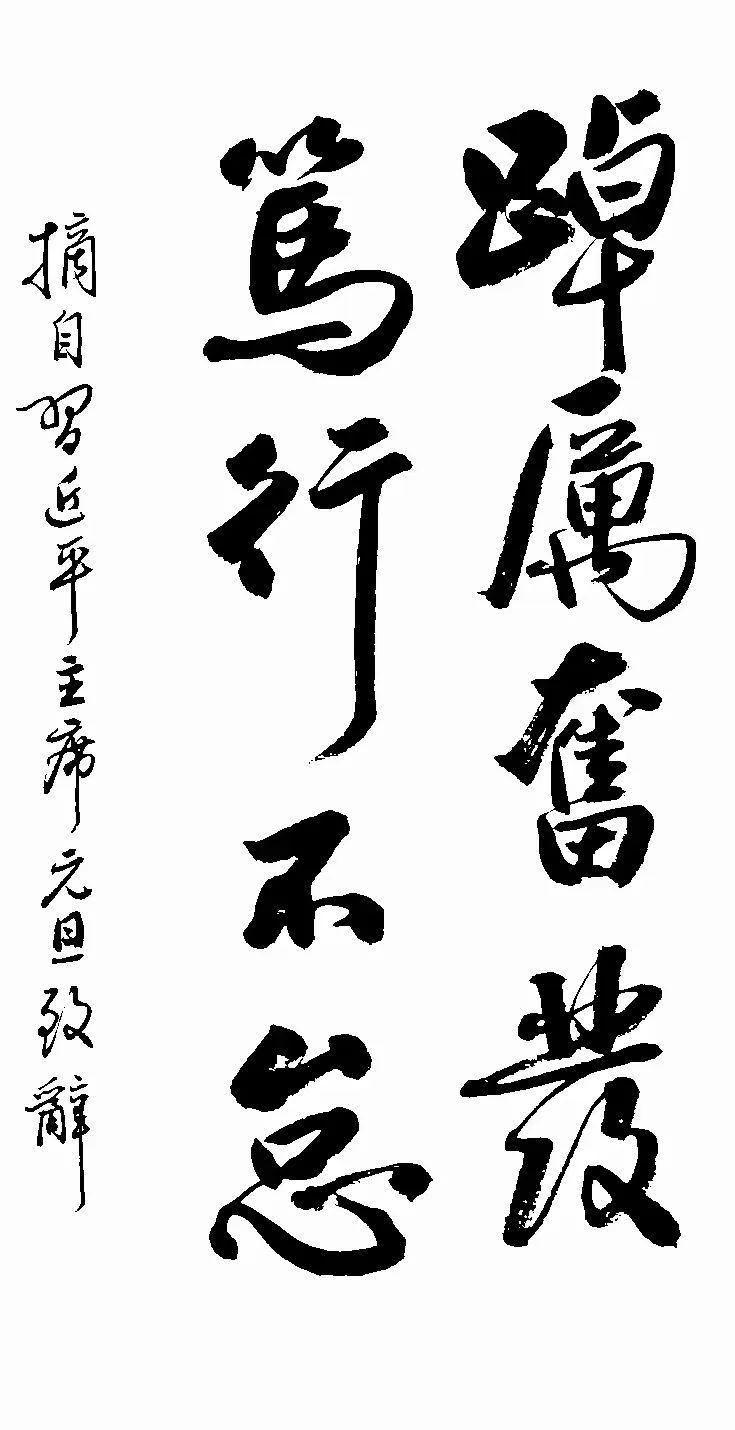 踔厲奮發
篤行不怠
摘自習近平主席元旦致辭